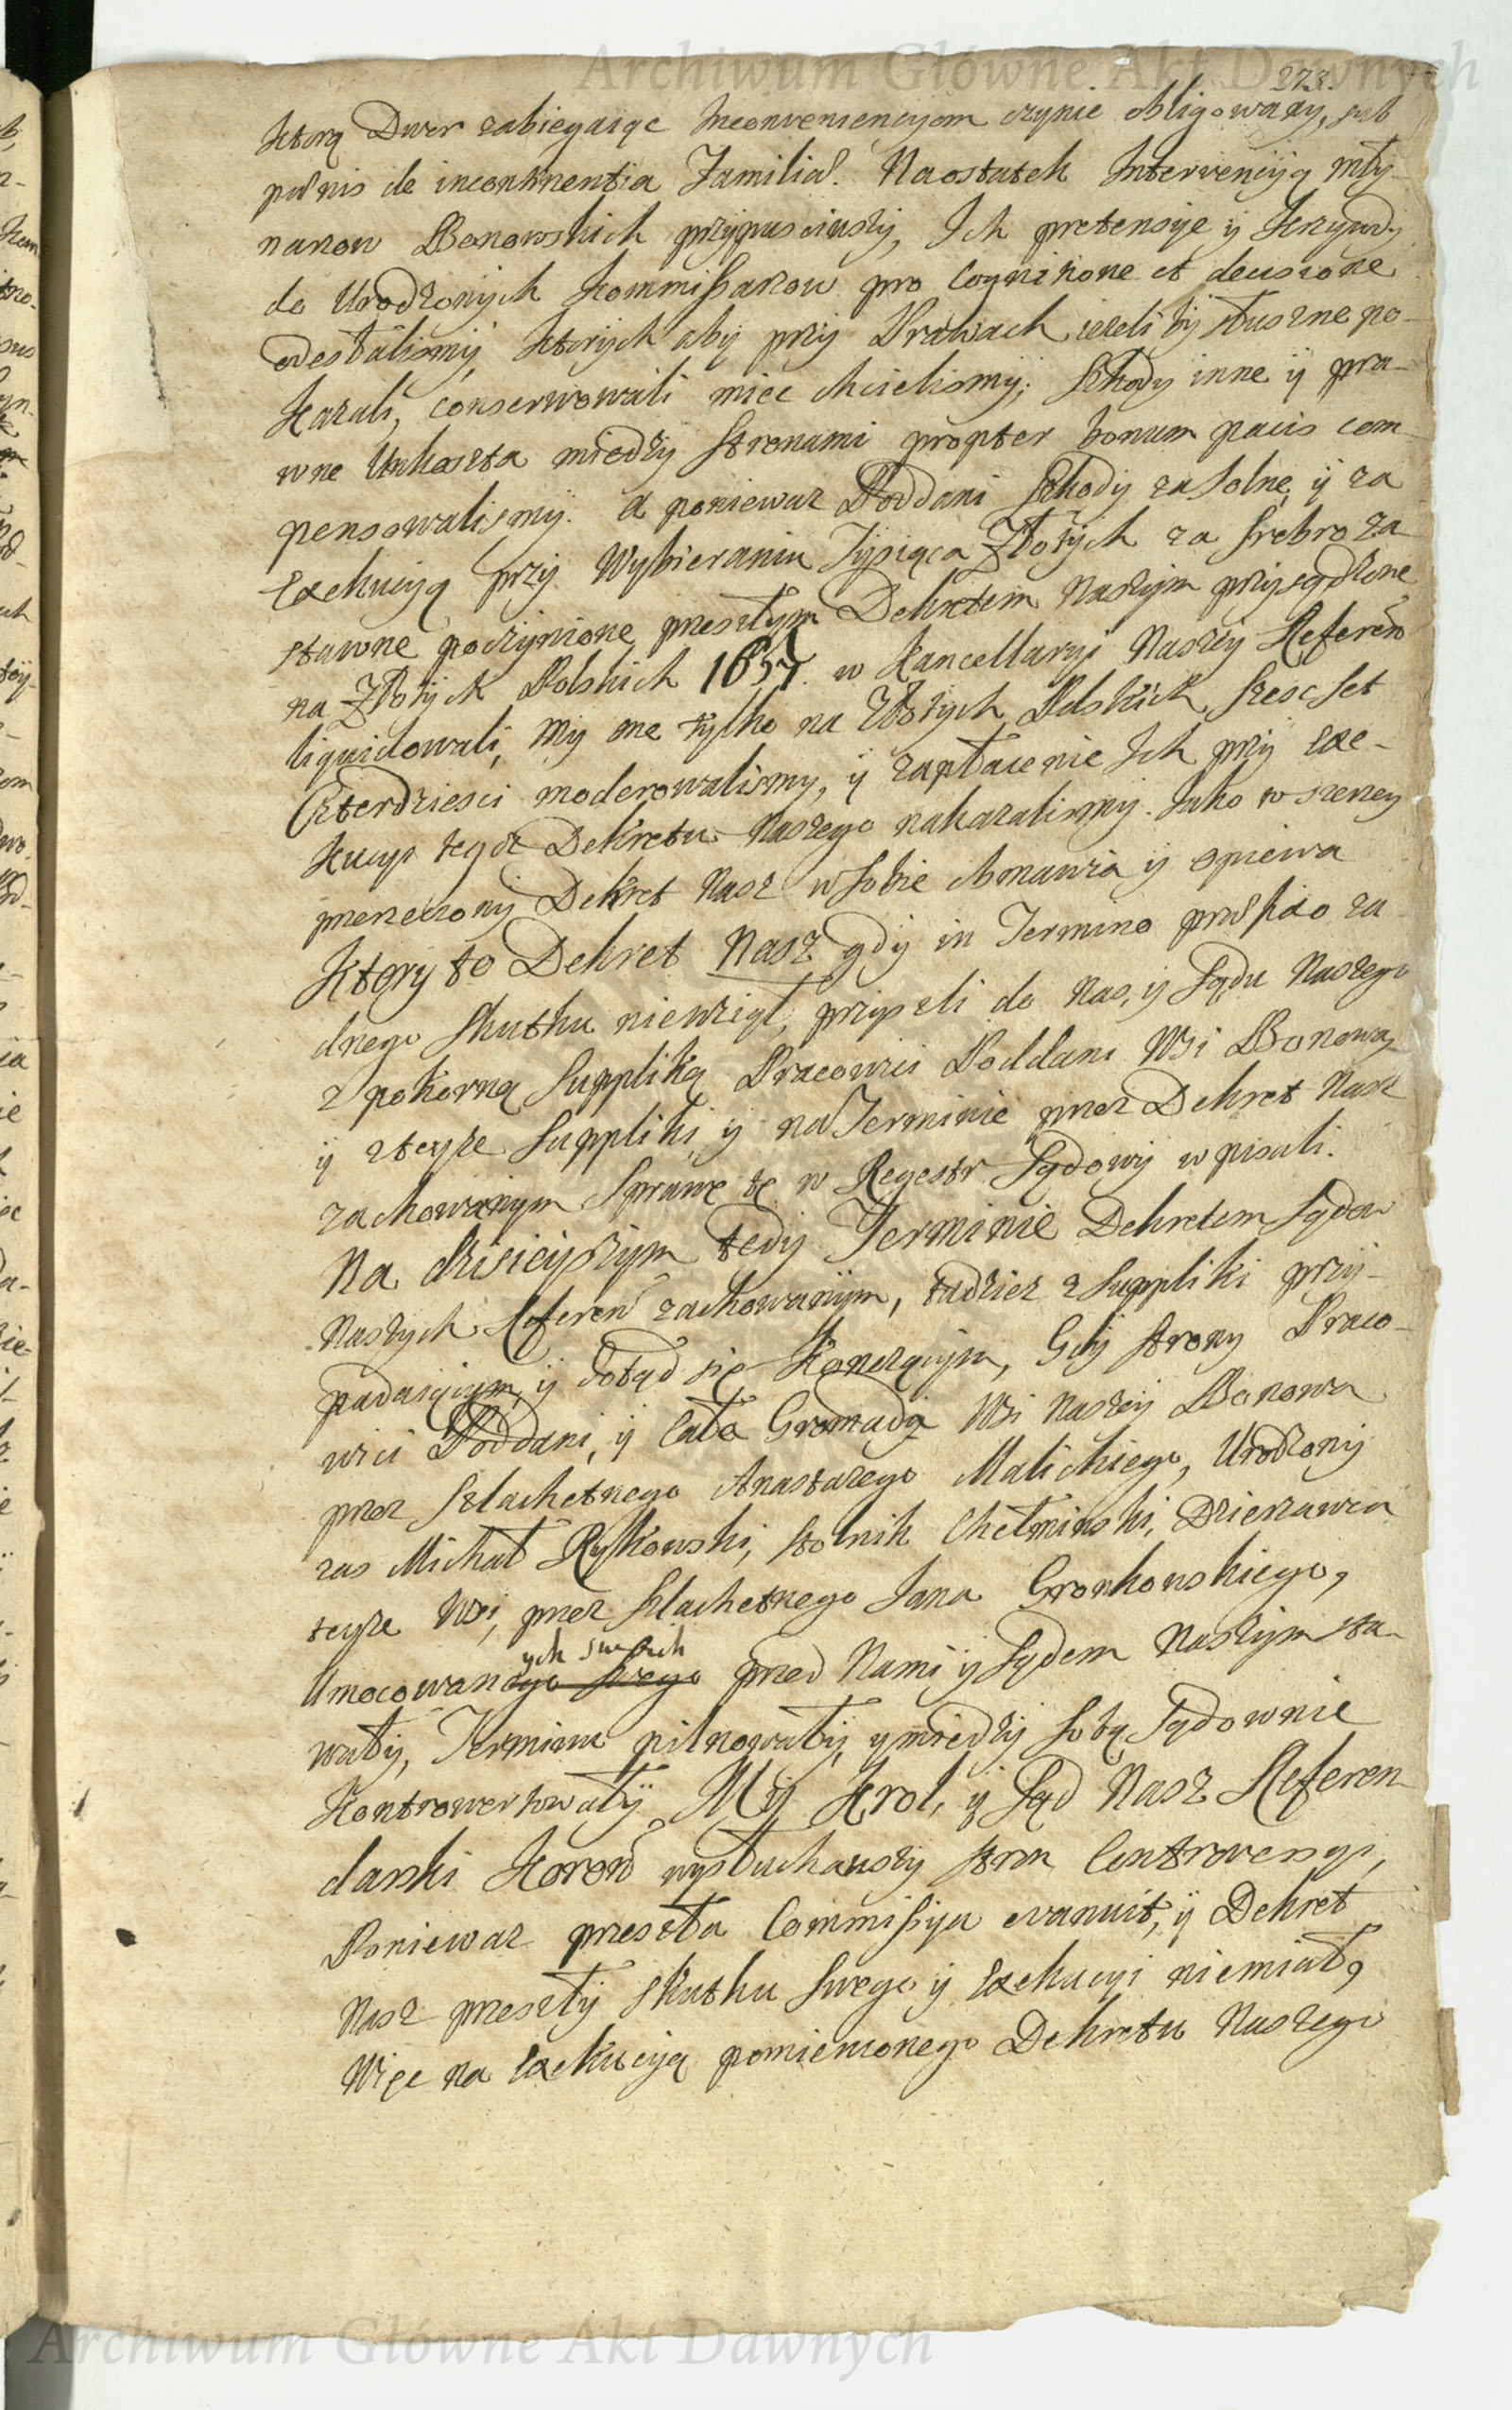 Archiwum Główne Akt Dawnych
273.
ktorą Dwor zabiegaiąc Inconveniencyom czynic obligowany, sub
pœnis de incontinentia Familiæ. Naostatek Interwencyją Mły-
narzow Bonowskich przypusciwszy, Ich pretensye ÿ Krzywdy
do Urodzonych Kommissarzow pro Cognitione et decisione
odesłalismy, ktorych aby przy Prawach ieżeli by słuszne po-
kazali, conserwowali miec chcielismy; Szkody inne ÿ pra-
wne Unkoszta między Stronami propter bonum pacis com-
pensowalismy. A poniewaz Poddani Szkody za Solne, ÿ za
Exekucyą przy Wybieraniu Tysiąca Złotych za Srebro za-
stawne poczynione, przeszłym Dekretem Naszym przysądzone
na Złotych Polskich 1657. w Kancellaryi Naszey Referen
liquidowali, My one tylko na Złotych Polskich Szesc set
Czterdziesci moderowalismy, ÿ zapłacenie Ich przy Exe-
kucyi tegoz Dekretu Naszego nakazalismy. Iako wszerzey
pomieniony Dekret Nasz w Sobie obmawia ÿ opiewa
Ktory to Dekret Nasz gdy in Termino præfixo za-
dnego Skutku niewziął, przyszli do Nas, ÿ Sądu Naszego
z pokorną Suppliką Pracowici Poddani Wsi Bonowa,
ÿ zteyze Suppliki, ÿ na Terminie przez Dekret Nasz
zachowanym Sprawę tę w Regestr Sądowy wpisali.
Na dzisieyszym tedy Terminie Dekretem Sądow
Naszych Referen zachowanym, tudziez z Suppliki przy-
padaiącym, ÿ dotąd się Konczącym, Gdy Strony Praco-
wici Poddani, ÿ Cała Gromada Wsi Naszey Bonowa
przez Szlachetnego Anastazego Malickiego, Urodzony
zas Michał Rytkowski, Stolnik Chełminski, Dzierzawca
teyze Wsi, przez Szlachetnego Iana Gronkowskiego,
ych Swoich
Umocowanego Swego przed Nami ÿ Sądem Naszym sta-
wały, Terminu pilnowały, ÿ między Sobą Sądownie
Kontrowertowały. My Krol, ÿ Sąd Nasz Referen
darski Koron wysłuchawszy Stron Controwersyi,
Poniewaz przeszła Commissya evanuit, ÿ Dekret
Nasz przeszły Skutku Swego ÿ Exekucyi niemiał,
Więc na Exekucyją pomienionego Dekretu Naszego
Archiwum Główne Akt Dawnych